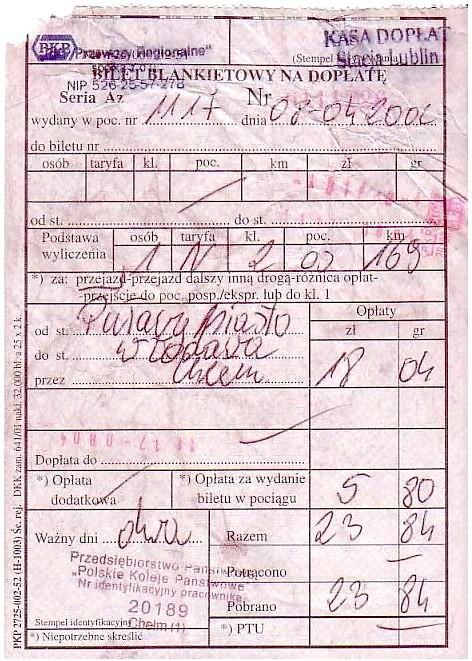 PKP „Przewozy Regionalne"
NIP 526-25-57-278
(Stempel
KASA DOPŁAT
Stacja Lublin
BILET BLANKIETOWY NA DOPŁATĘ
Seria Az Nr
wydany w poc. nr 1117 dnia 08-04-200
do biletu nr
osób taryfa kl. poc. km zł gr
od st. do st.
Podstawa wyliczenia osób taryfa kl. poc. km
1 N 2 os 169
*) za: przejazd-przejazd dalszy inną drogą-różnica opłat-
-przejście do poc. posp./ekspr. lub do kl. 1
Opłaty
zł gr
od st. Puławy Miasto
do st. Włodawa
przez Chełm
18 04
Dopłata do
*) Opłata dodatkowa
*) Opłata za wydanie biletu w pociągu 5 80
Ważny dni dwa
Razem 23 84
Potrącono —
Pobrano 23 84
*) PTU —
Przedsiębiorstwo Państwowe
„Polskie Koleje Państwowe
Nr identyfikacyjny pracownika
20189
Chełm (1)
Stempel identyfikacyjny
*) Niepotrzebne skreślić
PKP 2725-002-52 (H-1003) Śc. rej. DKK zam. 641/01 nakł. 32.000 bl. a 25 x 2 k.